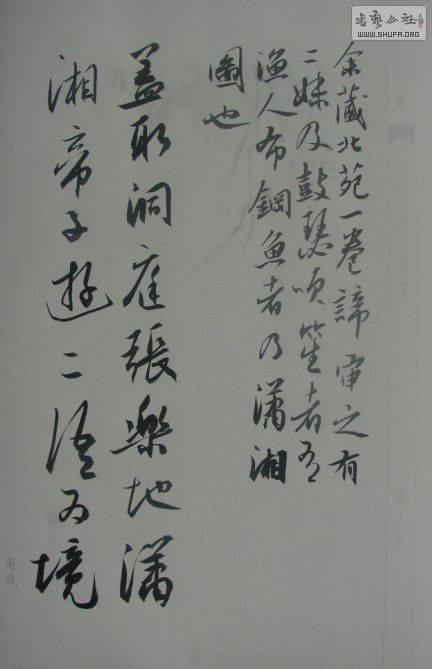 余藏北苑一卷諦审之有
二姝及鼓瑟吹笙者有
漁人布網魚者乃瀟湘
圖也
盖取洞庭張樂地瀟
湘帝子遊二語为境
書藝公社
WWW.SHUFA.ORG